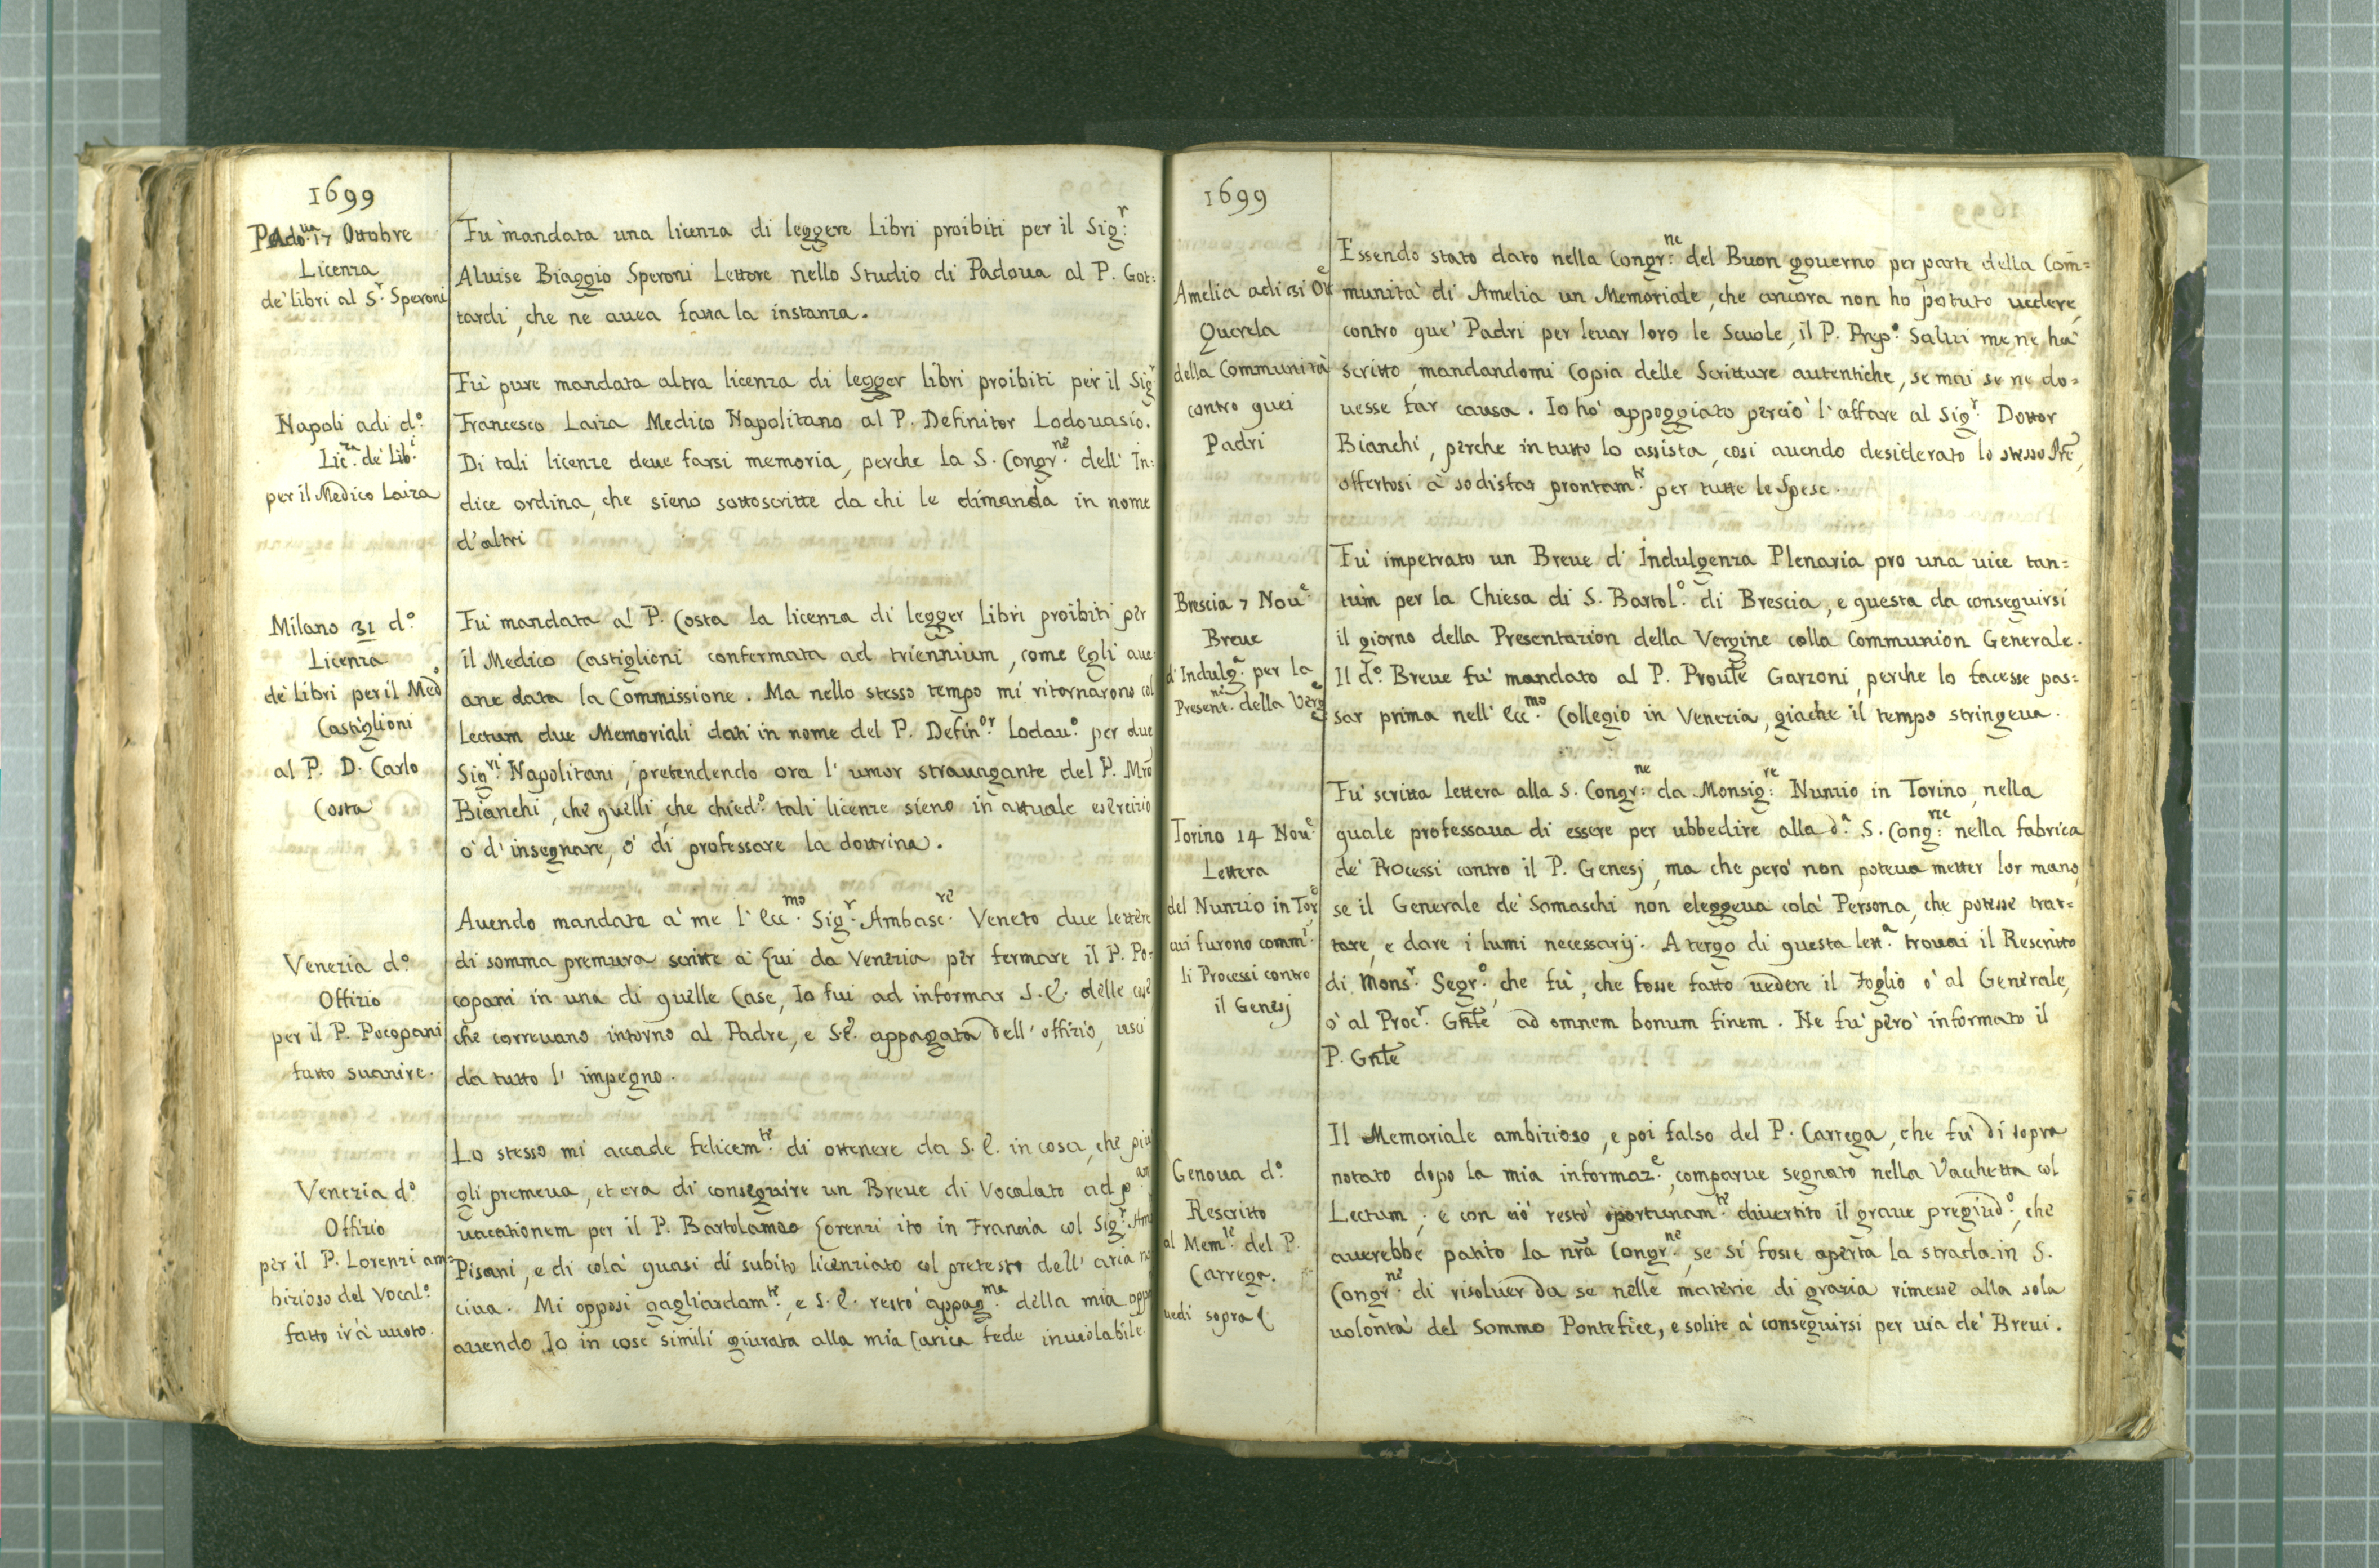 1699
Padoua 17 Ottobre
Licenza
de' libri al Sr. Speroni
Fù mandata una licenza di leggere Libri proibiti per il Sigr:
Aluise Biaggio Speroni Lettore nello Studio di Padoua al P. Got:
tardi, che ne auea fatta la instanza.
Napoli adi do.
Licza. de' Libi.
per il Medico Laiza
Fù pure mandata altra licenza di legger libri proibiti per il Sigr
Francesco Laiza Medico Napolitano al P. Definitor Lodouasio.
Di tali licenze deue farsi memoria, perche la S. Congrne. dell' In:
dice ordina, che sieno sottoscritte da chi le dimanda in nome
d'altri
Milano 31 do.
Licenza
de' Libri per il Medo
Castiglioni
al P. D. Carlo
Costa
Fù mandata al P. Costa la licenza di legger Libri proibiti per
il Medico Castiglioni confermata ad triennium, come Egli aue
ane data la Commissione. Ma nello stesso tempo mi ritornarono col
Lectum due Memoriali dati in nome del P. Definor. Lodauo. per due
Sigri. Napolitani, pretendendo ora l' umor strauagante del P. Mro
Bianchi, che quelli, che chiedo. tali licenze sieno in attuale esercizio
ò d' insegnare, ò di professare la dottrina.
Venezia do.
Offizio
per il P. Pocopani
fatto suanire.
Auendo mandate à me l' Eccmo. Sigr. Ambascre. Veneto due lettere
di somma premura scritte à Lui da Venezia per fermare il P. Po-
copani in una di quelle Case, Io fui ad informar S. E. delle cose
che correuano intorno al Padre, e S.E. appagata dell' offizio, uscì
da tutto l' impegno.
Venezia do.
Offizio
per il P. Lorenzi am=
bizioso del Vocalo.
fatto ir à uuoto.
Lo stesso mi accade felicemte. di ottenere da S. E. in cosa, che più
gli premeua, et era di conseguire un Breue di Vocalato ad pam
uacationem per il P. Bartolameo Lorenzi ito in Francia col Sigr. Amb
Pisani, e di colà quasi di subito licenziato col pretesto dell' aria no
ciua. Mi opposi gagliardamte., e S. E. restò appagma. della mia oppo
auendo Io in cose simili giurata alla mia Carica fede inuiolabile.
1699
Amelia adi 31 Ote
Querela
della Communità
contro quei
Padri
Essendo stato dato nella Congrne: del Buon gouerno per parte della Com̃=
munità di Amelia un Memoriale, che ancora non ho potuto uedere,
contro que' Padri per leuar loro le Scuole, il P. Prepo. Salui me ne ha
scritto, mandandomi Copia delle Scritture autentiche, se mai se ne do=
uesse far causa. Io hò appoggiato perciò l' affare al Sigr. Dottor
Bianchi, perche in tutto lo assista, così auendo desiderato lo stesso Pre,
offertosi à sodisfar prontamte. per tutte le Spese.
Brescia 7 Noue.
Breue
d' Indulga. per la
Presentne. della Verge
Fù impetrato un Breue d' Indulgenza Plenaria pro una uice tan=
tùm per la Chiesa di S. Bartolo. di Brescia, e questa da conseguirsi
il giorno della Presentazion della Vergine colla Communion Generale.
Il do. Breue fù mandato al P. Proule Garzoni, perche lo facesse pas=
sar prima nell' Eccmo. Collegio in Venezia, giache il tempo stringeua.
Torino 14 Noue.
Lettera
del Nunzio in Tore,
cui furono commi.
li Processi contro
il Genesj
Fù scritta lettera alla S. Congrne: da Monsigre: Nunzio in Torino, nella
quale professaua di essere per ubbedire alla da. S. Congne: nella fabrica
de' Processi contro il P. Genesj, ma che però non poteua metter lor mano,
se il Generale de' Somaschi non eleggeua colà Persona, che potesse trat=
tare, e dare i lumi necessarij. A tergo di questa letta. trouai il Rescritto
di Monsr. Segro., che fù, che fosse fatto uedere il Foglio ò al Generale,
ò al Procr. Gnle ad omnem bonum finem. Ne fù però informato il
P. Gnle
Genoua do.
Rescritto
al Memle. del P.
Carrega.
uedi sopra
Il Memoriale ambizioso, e poi falso del P. Carrega, che fù di sopra
notato dopo la mia informaze., comparue segnato nella Vacchetta col
Lectum; e con ciò restò oportunamte. diuertito il graue pregiudo., che
auerebbe patito la nrã Congrne., se si fosse aperta la strada in S.
Congrne. di risoluer da se nelle materie di grazia rimesse alla sola
uolontà del Sommo Pontefice, e solite à conseguirsi per uia de' Breui.